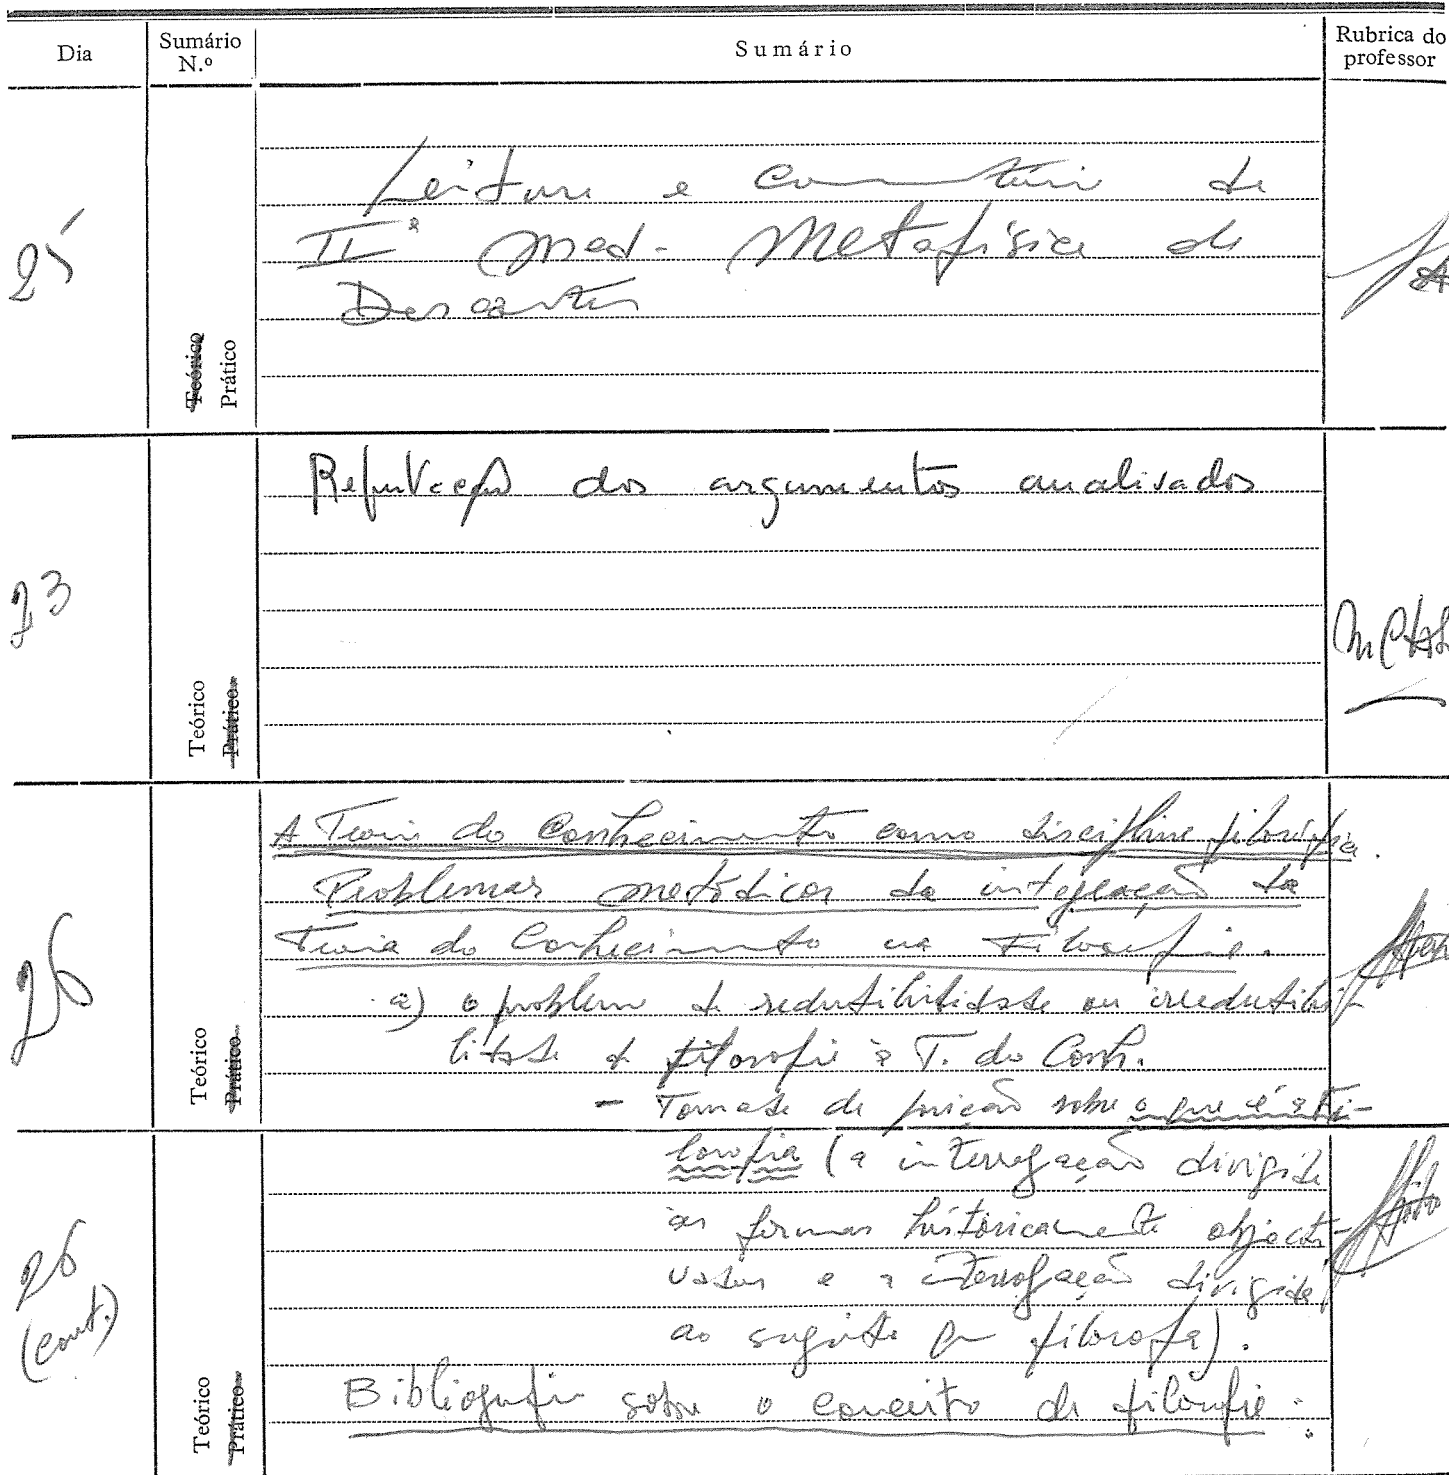 Dia
Sumário N.º
Sumário
Rubrica do professor
25
Teórico
Prático
Leitura e Comentário da
IIª Med. Metafísica de
Descartes
23
Teórico
Prático
Refutação dos argumentos analisados
26
Teórico
Prático
A Teoria do Conhecimento como disciplina filosófica.
Problemas metódicos da integração da
Teoria do Conhecimento na Filosofia.
a) o problema da redutibilidade ou irredutibi-
lidade da filosofia à T. do Conh.
- Tomada de posição sobre o que é a Fi-
26
(cont.)
Teórico
Prático
losofia (a interrogação dirigida
às formas historicamente objecti-
vadas e a interrogação dirigida
ao sujeito que filosofa).
Bibliografia sobre o conceito de filosofia.